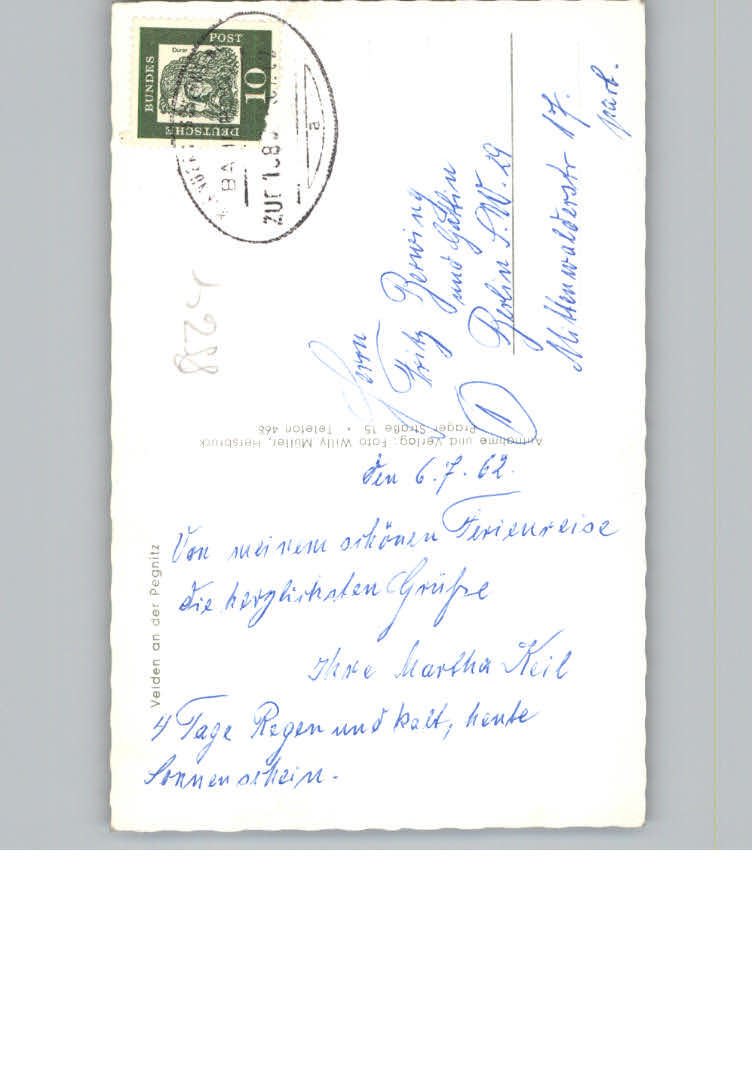 DEUTSCHE
BUNDES
POST
Dürer
10
BA
ZUG 1386
a
428
Herrn
Fritz Berwing
und Gattin
1 Berlin S.W. 29
Mittenwalderstr 17.
part.
Aufnahme und Verlag: Foto Willy Müller, Hersbruck
Prager Straße 15 • Telefon 468
Velden an der Pegnitz
den 6.7.62.
Von meinem schönen Ferienreise
die herzlichsten Grüße
Ihre Martha Keil
4 Tage Regen und kalt, heute
Sonnenschein.